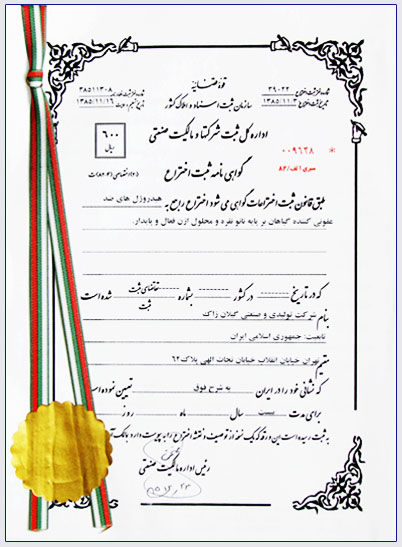 قوه قضائیه
سازمان ثبت اسناد و املاک کشور
شماره ثبت اختراع ۳۹۰۲۲
تاریخ ثبت اختراع ۱۳۸۵/۱۱/۳
۳۸۵۱۱۳۰۸
۱۳۸۵/۱۱/۱۶
اداره کل ثبت شرکتها و مالکیت صنعتی
۶۰۰
ریال
۰۰۹۶۳۸ *
سری الف/۸۲
گواهی نامه ثبت اختراع
طبق قانون ثبت اختراعات گواهی می شود اختراع راجع به هیدروژل های ضد
عفونی کننده گیاهان بر پایه نانو نقره و محلول ازن فعال و پایدار.
که در تاریخ -------- در کشور -------- بشماره تقاضای ثبت شده است
ثبت
بنام شرکت تولیدی و صنعتی گیلان زاک
تابعیت: جمهوری اسلامی ایران
مقیم تهران خیابان انقلاب خیابان نجات الهی پلاک ۶۲
که نشانی خود را در ایران به شرح فوق تعیین نموده است
برای مدت بیست سال ماه روز
به ثبت رسیده است این ورقه که یک نسخه از توصیف و نقشه اختراع را به پیوست دارد
رئیس اداره مالکیت صنعتی